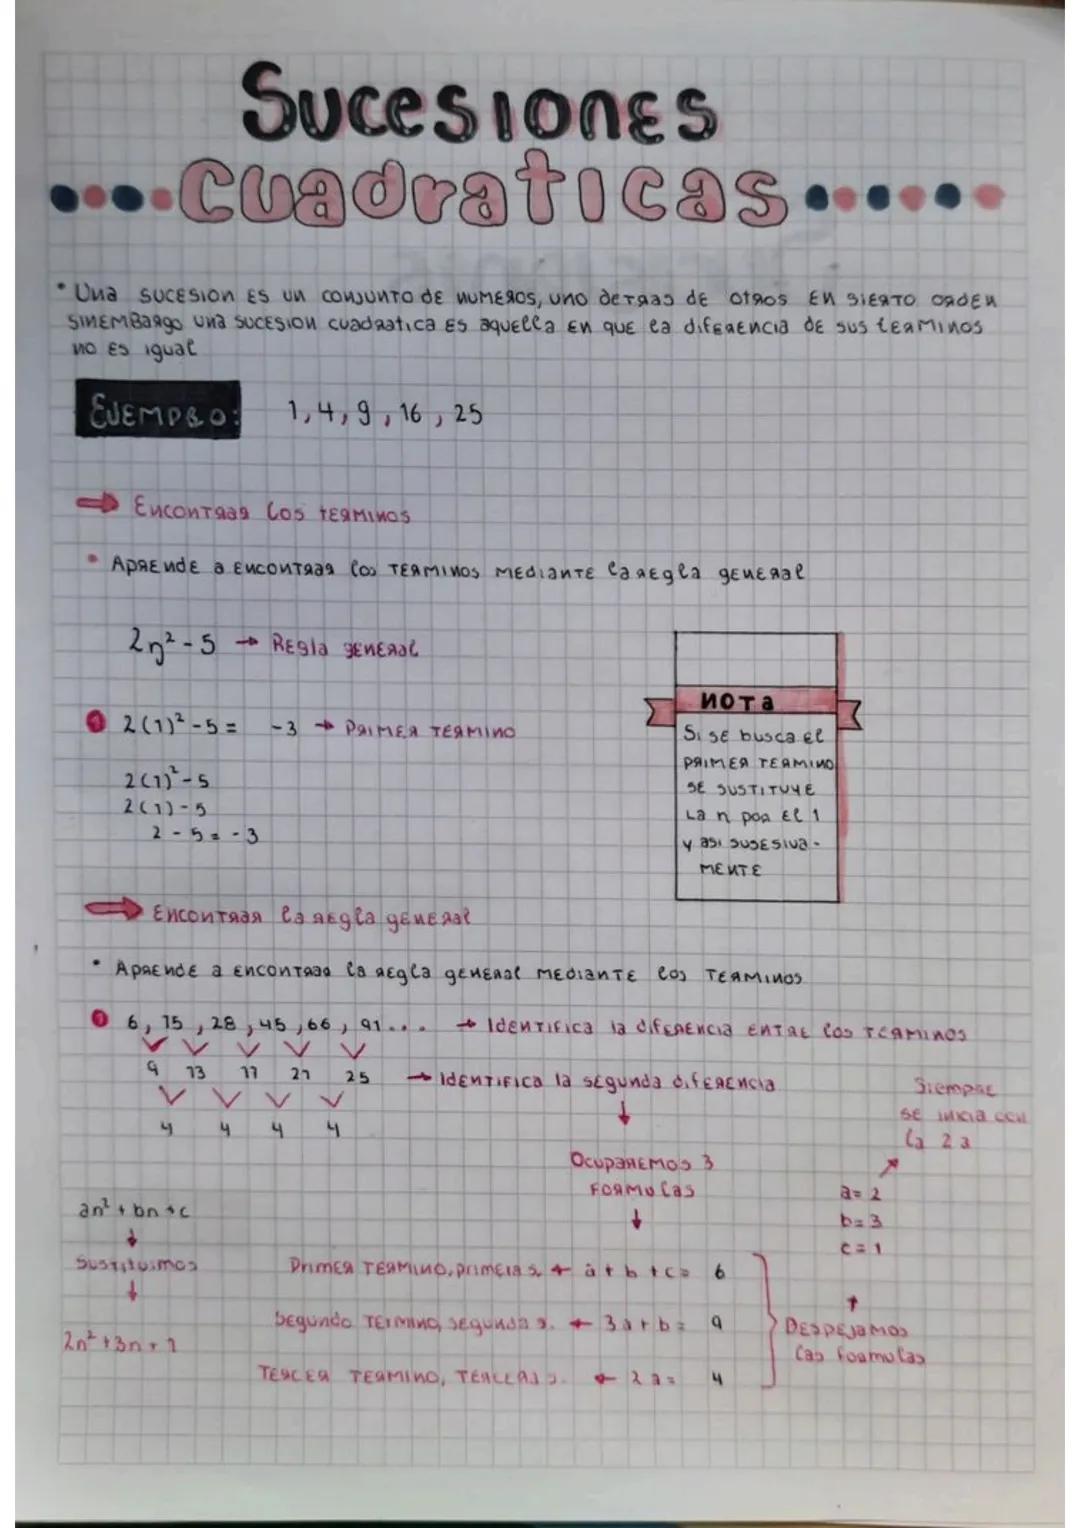 Sucesiones
Cuadraticas
• Una sucesion es un conjunto de numeros, uno detras de otros en sierto orden
sinembargo una sucesion cuadratica es aquella en que la diferencia de sus terminos
no es igual
Ejemplo: 1, 4, 9, 16, 25
→ Encontrar los terminos
• Aprende a encontrar los terminos mediante la regla general
2n² - 5 → Regla general
1 2(1)² - 5 = -3 → Primer termino
2(1)² - 5
2(1) - 5
2 - 5 = -3
Nota
Si se busca el
primer termino
se sustituye
la n por el 1
y asi susesiva-
mente
→ Encontrar la regla general
• Aprende a encontrar la regla general mediante los terminos
1 6, 15, 28, 45, 66, 91... → Identifica la diferencia entre los terminos
9 13 17 21 25 → Identifica la segunda diferencia
4 4 4 4
Siempre
se inicia con
la 2a
Ocuparemos 3
formulas
a = 2
b = 3
c = 1
an² + bn + c
↓
Sustituimos
↓
2n² + 3n + 1
Primer termino, primera s. ← a + b + c = 6
Segundo termino, segunda s. ← 3a + b = 9
Tercer termino, tercera s. ← 2a = 4
↑
Despejamos
las formulas